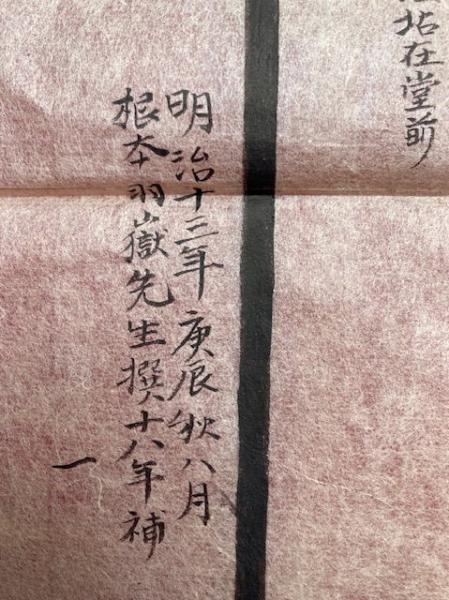 坫在堂前
明治十三年庚辰秋八月
根本羽嶽先生撰十八年補
一